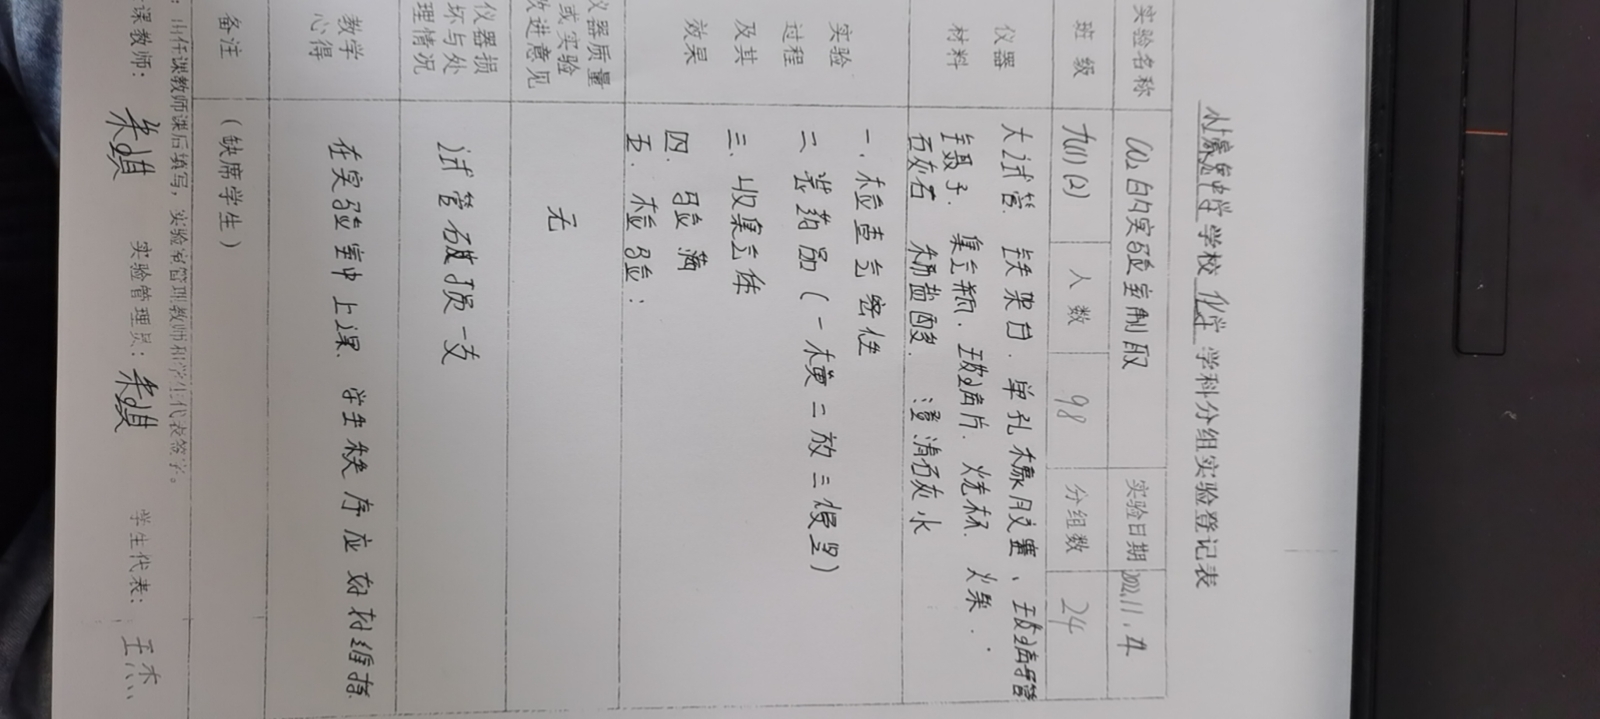 学校 化学 学科分组实验登记表
实验名称 CO₂的实验室制取 实验日期 2022.11.4
班级 九(1)(2) 人数 98 分组数 24
仪器材料
大试管 铁架台. 单孔橡胶塞、玻璃导管
镊子. 集气瓶. 玻璃片. 烧杯. 火柴.
石灰石 稀盐酸. 澄清石灰水
实验过程及其效果
一. 检查气密性
二 装药品(一横二放三慢竖)
三. 收集气体
四. 验满
五. 检验:
仪器质量
或实验
改进意见
无
仪器损
坏与处
理情况
试管破损一支
教学心得
在实验室中上课. 学生秩序应好好维持
备注 (缺席学生)
:由任课教师课后填写,实验室管理教师和学生代表签字。
课教师: 朱 实验管理员: 朱 学生代表: 王杰